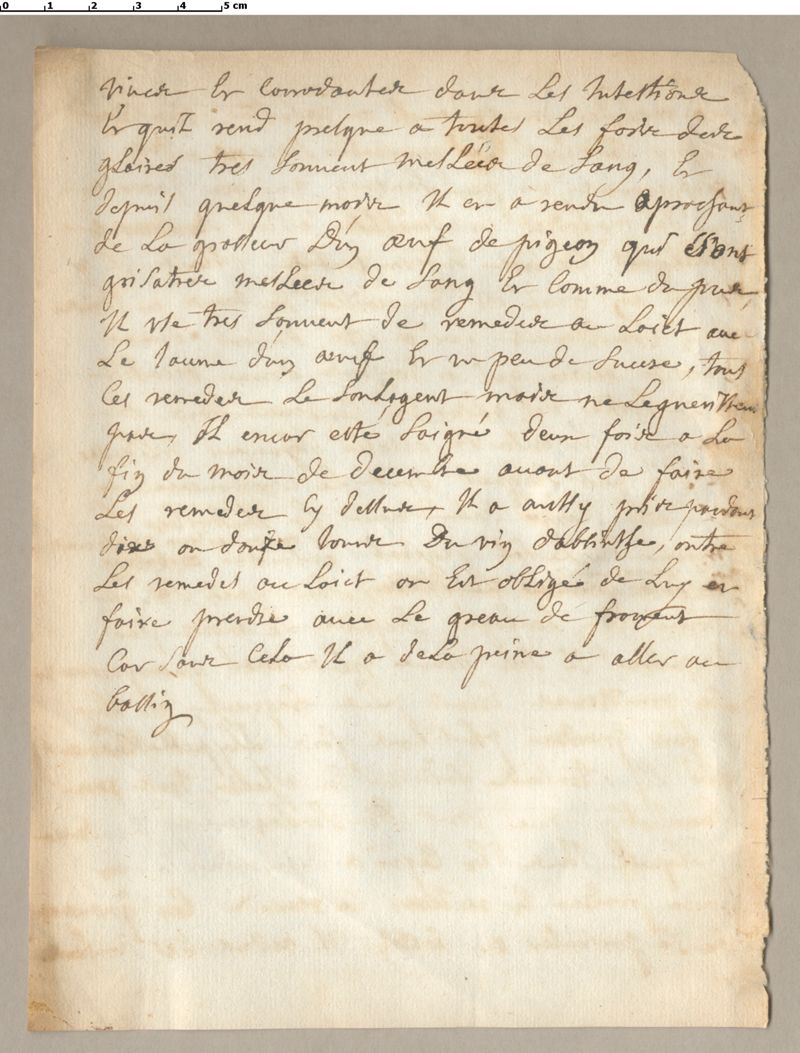 0 1 2 3 4 5 cm
vives Et Corrodantes dans Les Intestins
Et quil rend presque a toutes Les fois des
glaires tres souvent mesLéés de sang, Et
depuis quelque mois Il en a rendu aprochant
de La grosseur Dún œuf de pigeon qui estoint
grisatres mesLees de sang Et Comme du pus,
Il Use tres souvent de remedes au Laict avec
Le Iaune dún œuf Et un peu de sucre, tous
Ces remedes Le soulagent mais ne Le guerissent
pas, Il encor esté saigné deux fois a La
fin du mois de decembre avant de faire
Les remedes Cy dessus, Il a aussy pris pendant
dix ou douze Iours Du vin dabsinthe, outre
Les remedes au Laict on Est obligé de Luy en
faire prendre avec Le greau de froment
Car sans Cela Il a deLa peine a aller au
bassin